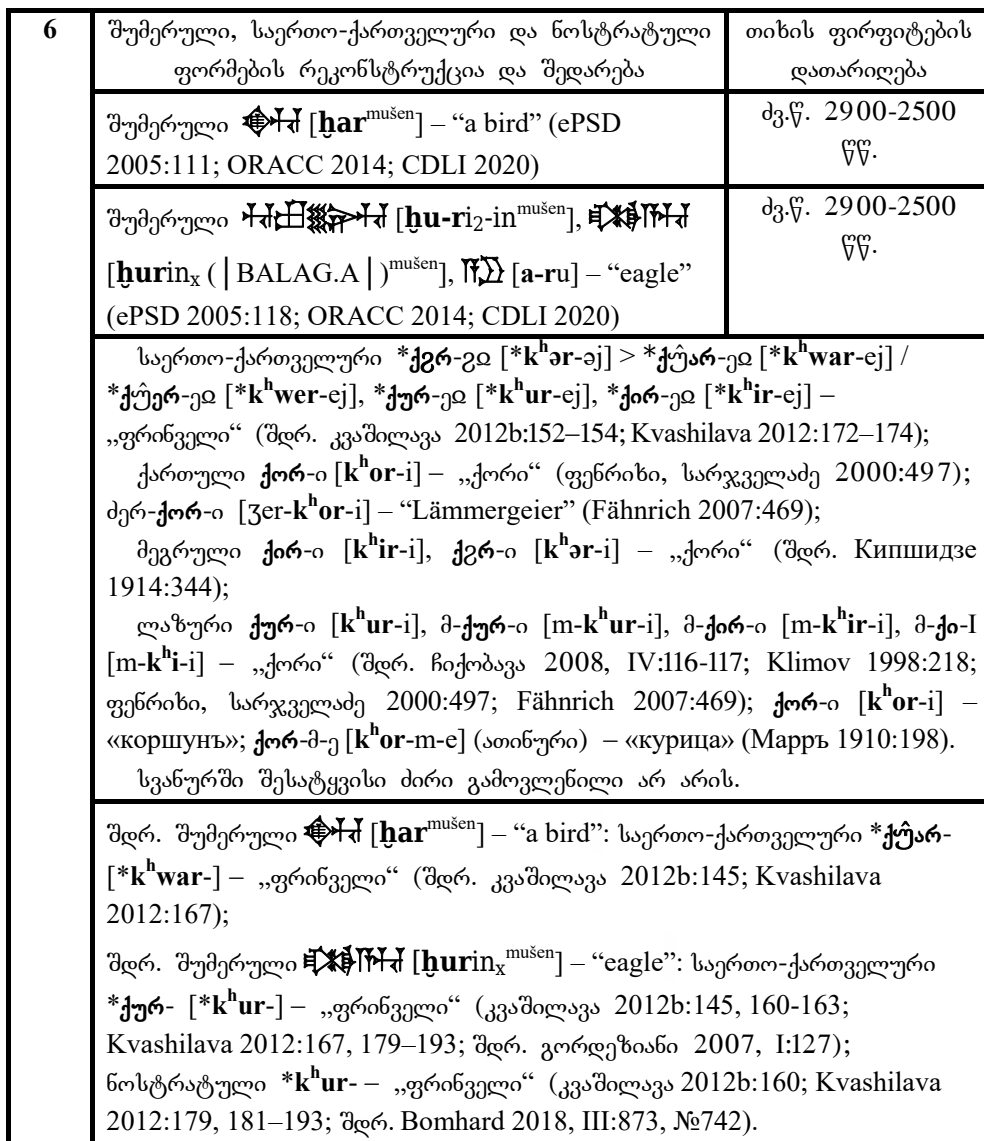 6
შუმერული, საერთო-ქართველური და ნოსტრატული
ფორმების რეკონსტრუქცია და შედარება
თიხის ფირფიტების
დათარიღება
შუმერული [ḫar^mušen] – “a bird” (ePSD
2005:111; ORACC 2014; CDLI 2020)
ძვ.წ. 2900-2500
წწ.
შუმერული [ḫu-ri₂-in^mušen],
[ḫurinₓ (│BALAG.A│)^mušen], [a-ru] – “eagle”
(ePSD 2005:118; ORACC 2014; CDLI 2020)
ძვ.წ. 2900-2500
წწ.
საერთო-ქართველური *ქჷრ-ჷჲ [*kʰər-əj] > *ქუ̂არ-ეჲ [*kʰwar-ej] /
*ქუ̂ერ-ეჲ [*kʰwer-ej], *ქურ-ეჲ [*kʰur-ej], *ქირ-ეჲ [*kʰir-ej] –
„ფრინველი“ (შდრ. კვაშილავა 2012b:152–154; Kvashilava 2012:172–174);
ქართული ქორ-ი [kʰor-i] – „ქორი“ (ფენრიხი, სარჯველაძე 2000:497);
ძერ-ქორ-ი [ʒer-kʰor-i] – “Lämmergeier” (Fähnrich 2007:469);
მეგრული ქირ-ი [kʰir-i], ქჷრ-ი [kʰər-i] – „ქორი“ (შდრ. Кипшидзе
1914:344);
ლაზური ქურ-ი [kʰur-i], მ-ქურ-ი [m-kʰur-i], მ-ქირ-ი [m-kʰir-i], მ-ქი-I
[m-kʰi-i] – „ქორი“ (შდრ. ჩიქობავა 2008, IV:116-117; Klimov 1998:218;
ფენრიხი, სარჯველაძე 2000:497; Fähnrich 2007:469); ქორ-ი [kʰor-i] –
«коршунъ»; ქორ-მ-ე [kʰor-m-e] (ათინური) – «курица» (Марръ 1910:198).
სვანურში შესატყვისი ძირი გამოვლენილი არ არის.
შდრ. შუმერული [ḫar^mušen] – “a bird”: საერთო-ქართველური *ქუ̂არ-
[*kʰwar-] – „ფრინველი“ (შდრ. კვაშილავა 2012b:145; Kvashilava
2012:167);
შდრ. შუმერული [ḫurinₓ^mušen] – “eagle”: საერთო-ქართველური
*ქურ- [*kʰur-] – „ფრინველი“ (კვაშილავა 2012b:145, 160-163;
Kvashilava 2012:167, 179–193; შდრ. გორდეზიანი 2007, I:127);
ნოსტრატული *kʰur- – „ფრინველი“ (კვაშილავა 2012b:160; Kvashilava
2012:179, 181–193; შდრ. Bomhard 2018, III:873, №742).